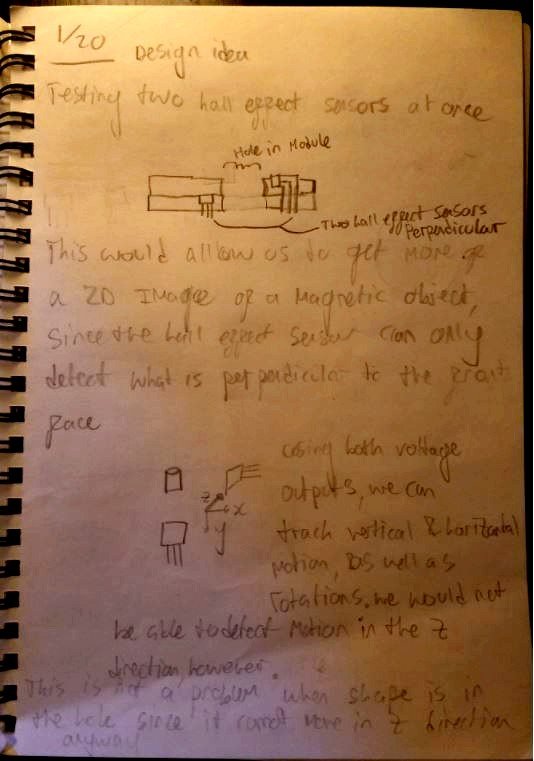 1/20 Design idea
Testing two hall effect sensors at once
Hole in Module
Two hall effect sensors
Perpendicular
This would allow us to get more of
a 2D Image of a Magnetic object,
Since the hall effect sensor can only
detect what is perpendicular to the front
face
using both voltage
outputs, we can
z x
y
track vertical & horizontal
motion, as well as
rotations. we would not
be able to detect Motion in the z
direction, however.
This is not a problem when shape is in
the hole since it cannot move in z direction
anyway